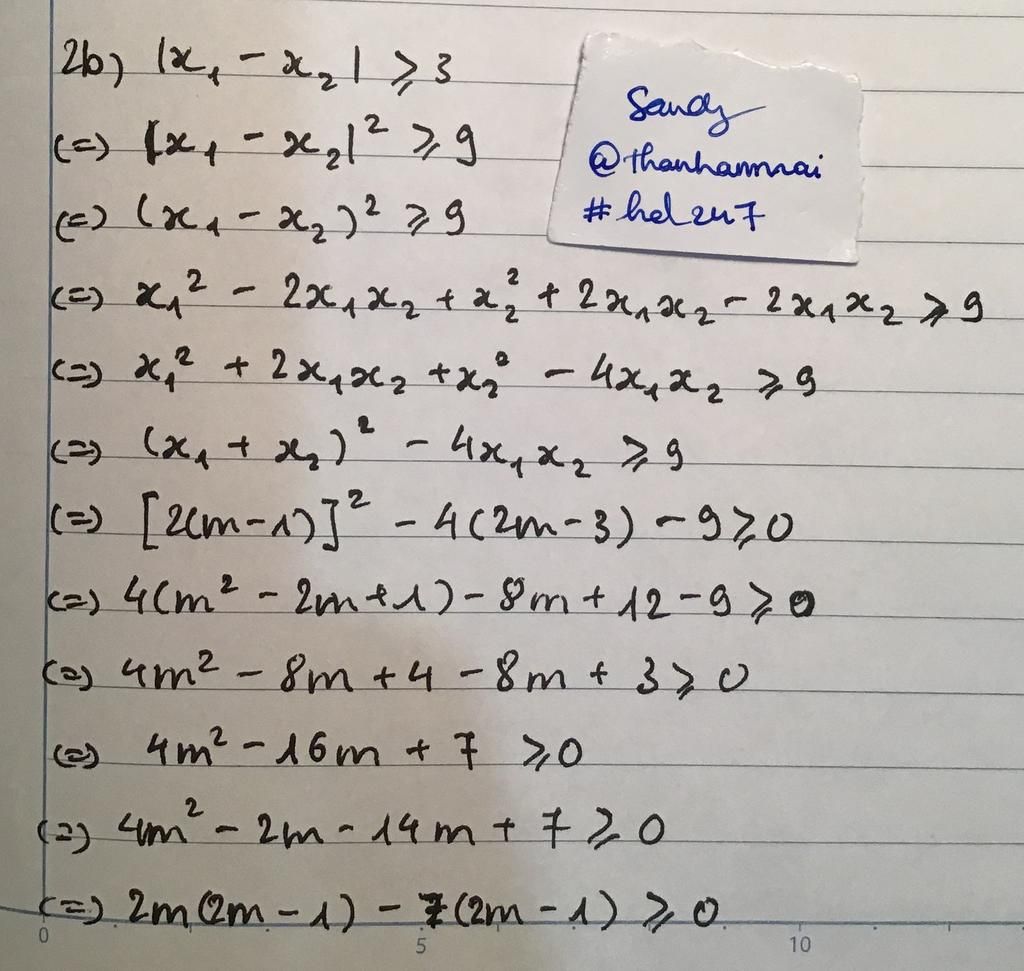 2b) |x₁ - x₂| ⩾ 3
(=) |x₁ - x₂|² ⩾ 9
(=) (x₁ - x₂)² ⩾ 9
(=) x₁² - 2x₁x₂ + x₂² + 2x₁x₂ - 2x₁x₂ ⩾ 9
(=) x₁² + 2x₁x₂ + x₂² - 4x₁x₂ ⩾ 9
(=) (x₁ + x₂)² - 4x₁x₂ ⩾ 9
(=) [2(m-1)]² - 4(2m-3) - 9 ⩾ 0
(=) 4(m² - 2m+1) - 8m + 12 - 9 ⩾ 0
(=) 4m² - 8m + 4 - 8m + 3 ⩾ 0
(=) 4m² - 16m + 7 ⩾ 0
(=) 4m² - 2m - 14m + 7 ⩾ 0
(=) 2m(2m - 1) - 7(2m - 1) ⩾ 0
Sandy
@thanhanmai
#hd247
0 5 10